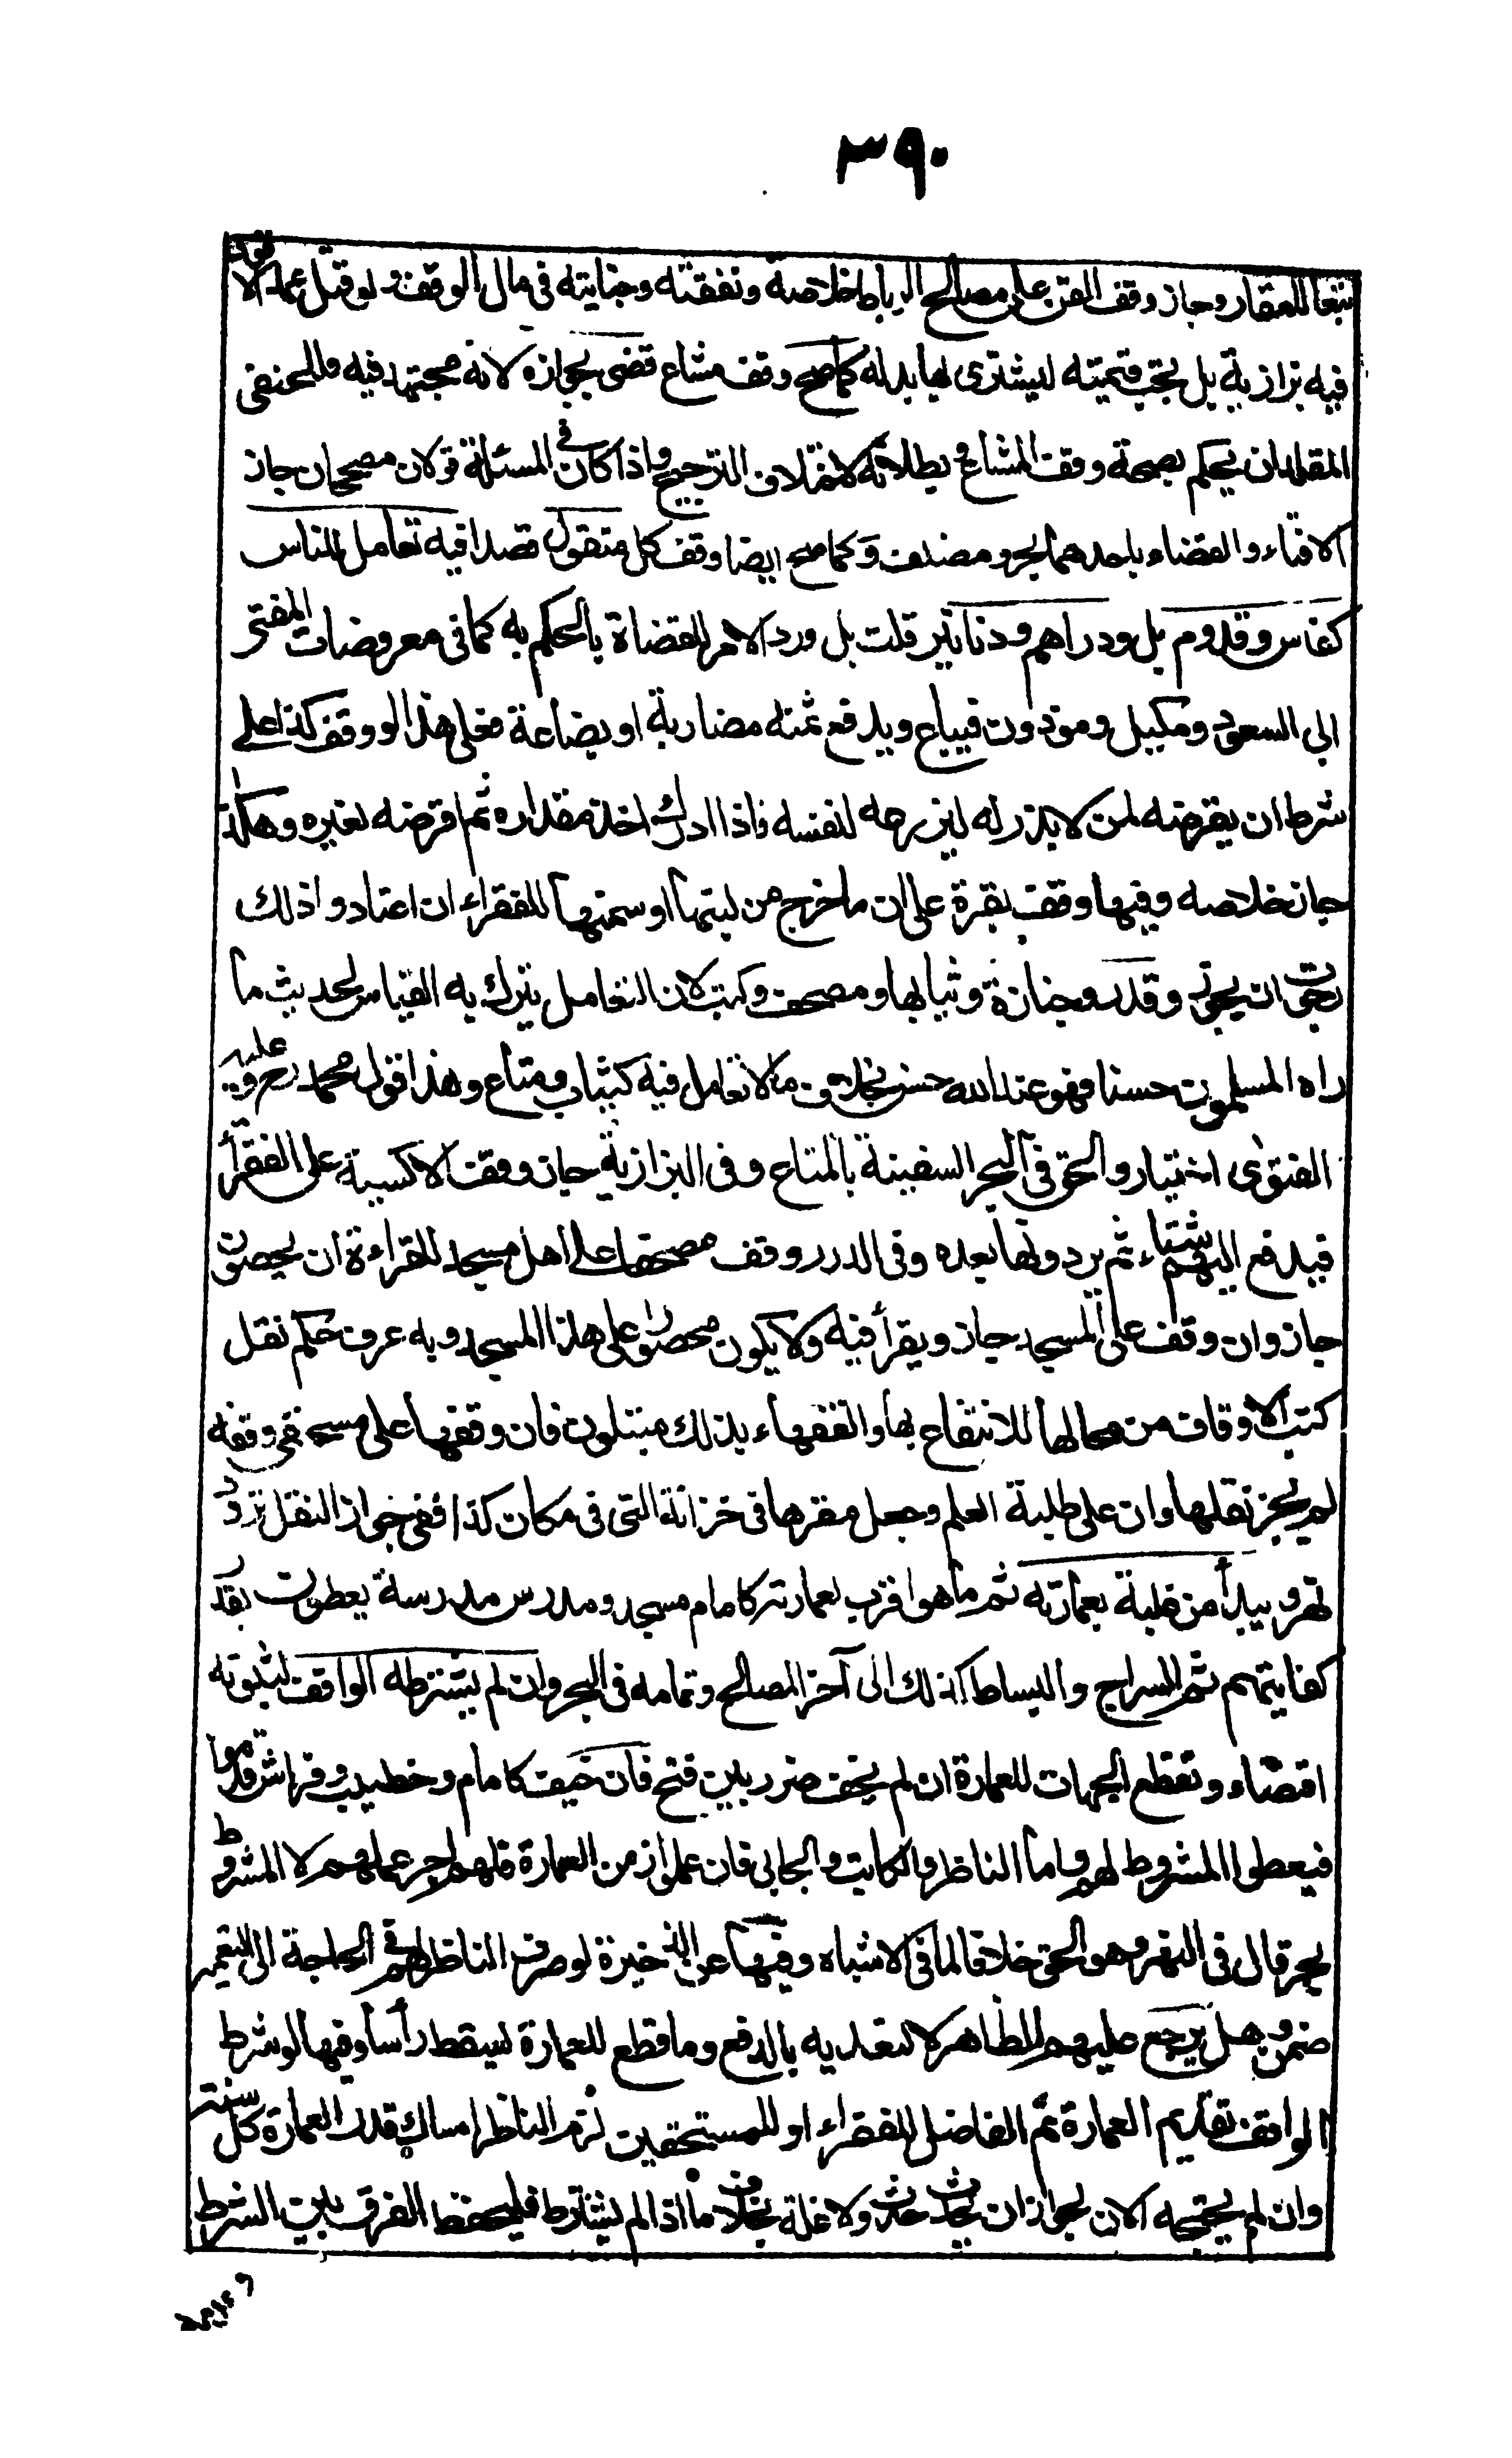 ٣٩٠
تبعا للعقار وجاز وقف القن على مصالح الرباط خلاصة ونفقته وجنايته في مال الوقف ولو قتل عمدا لا قود
فيه بزازية بل تجب قيمته ليشترى بها بدله كما صح وقف مشاع قضى بجوازه لانه مجتهد فيه فللحنفى
المقلد ان يحكم بصحة وقف المشاع وبطلانه لاختلاف الترجيح واذا كان في المسئلة قولان مصححان جاز
الافتاء والقضاء باحدهما بحر ومصنف وكما صح ايضا وقف كل منقول قصدا فيه تعامل للناس
كفاس وقدوم بل ودراهم ودنانير قلت بل ورد الامر للقضاة بالحكم به كما في معروضات المفتى
ابى السعود ومكيل وموزون فيباع ويدفع ثمنه مضاربة او بضاعة فعلى هذا لو وقف كذا على
شرط ان يقرضه لمن لا بذر له ليزرعه لنفسه فاذا ادرك اخذ مقداره ثم اقرضه لغيره وهكذا
جاز خلاصه وفيها وقف بقرة على ان ما خرج من لبنها او سمنها للفقراء ان اعتادوا ذلك
رجوت ان يجوز وقدر وجنازة وثيابها ومصحف وكتب لان التعامل يترك به القياس لحديث ما
راه المسلمون حسنا فهو عند الله حسن بخلاف ما لا تعامل فيه كثياب ومتاع وهذا قول محمد رح وعليه
الفتوى اختيار والحق في البحر السفينة بالمتاع وفى البزازية جاز وقف الاكسية على الفقرأ
فيدفع اليهم شتاء ثم يردونها بعده وفى الدرر وقف مصحفا على اهل مسجد للقراءة ان يحصون
جاز وان وقف على المسجد جاز ويقرأ فيه ولا يكون محصورا على هذا المسجد وبه عرف حكم نقل
كتب الاوقاف من محالها للانتفاع بها والفقهاء بذلك مبتلون فان وقفها على مستحقى وقفه
لم يجز نقلها وان على طلبة العلم وجعل مقرها في خزانة التى في مكان كذا ففى جواز النقل تردد
نهر ويبدأ من غلبة بعمارته ثم ما هو اقرب لعمارته كامام مسجد ومدرس مدرسة يعطون بقدر
كفايتهم ثم السراج والبساط كذلك الى آخر المصالح وتمامه في البحر وان لم يشترطه الواقف لثبوته
اقتضاء وتقطع الجهات للعمارة ان لم يخف ضرر بين فتح فان خيف كامام وخطيب وفراش قدموا
فيعطوا المشروط لهم واما الناظر والكاتب والجابى فان عملوا زمن العمارة فلهم اجر عملهم لا المشروط
بحر قال في النهر وهو الحق خلافا لما في الاشباه وفيها عن الذخيرة لو صرف الناظر لهم في الحاجة الى التعمير
ضمن وهل يرجع عليهم الظاهر لا لتعديه بالدفع وما قطع للعمارة يسقط رأسا وفيها لو شرط
الواقف تقديم العمارة ثم الفاضل للفقراء او للمستحقين لزم الناظر امساك قدر العمارة كل سنة
وان لم يحتجه الان لجواز ان يحدث حدث ولا غلة بخلاف ما اذا لم يشترط فليحفظ الفرق بين الشرط